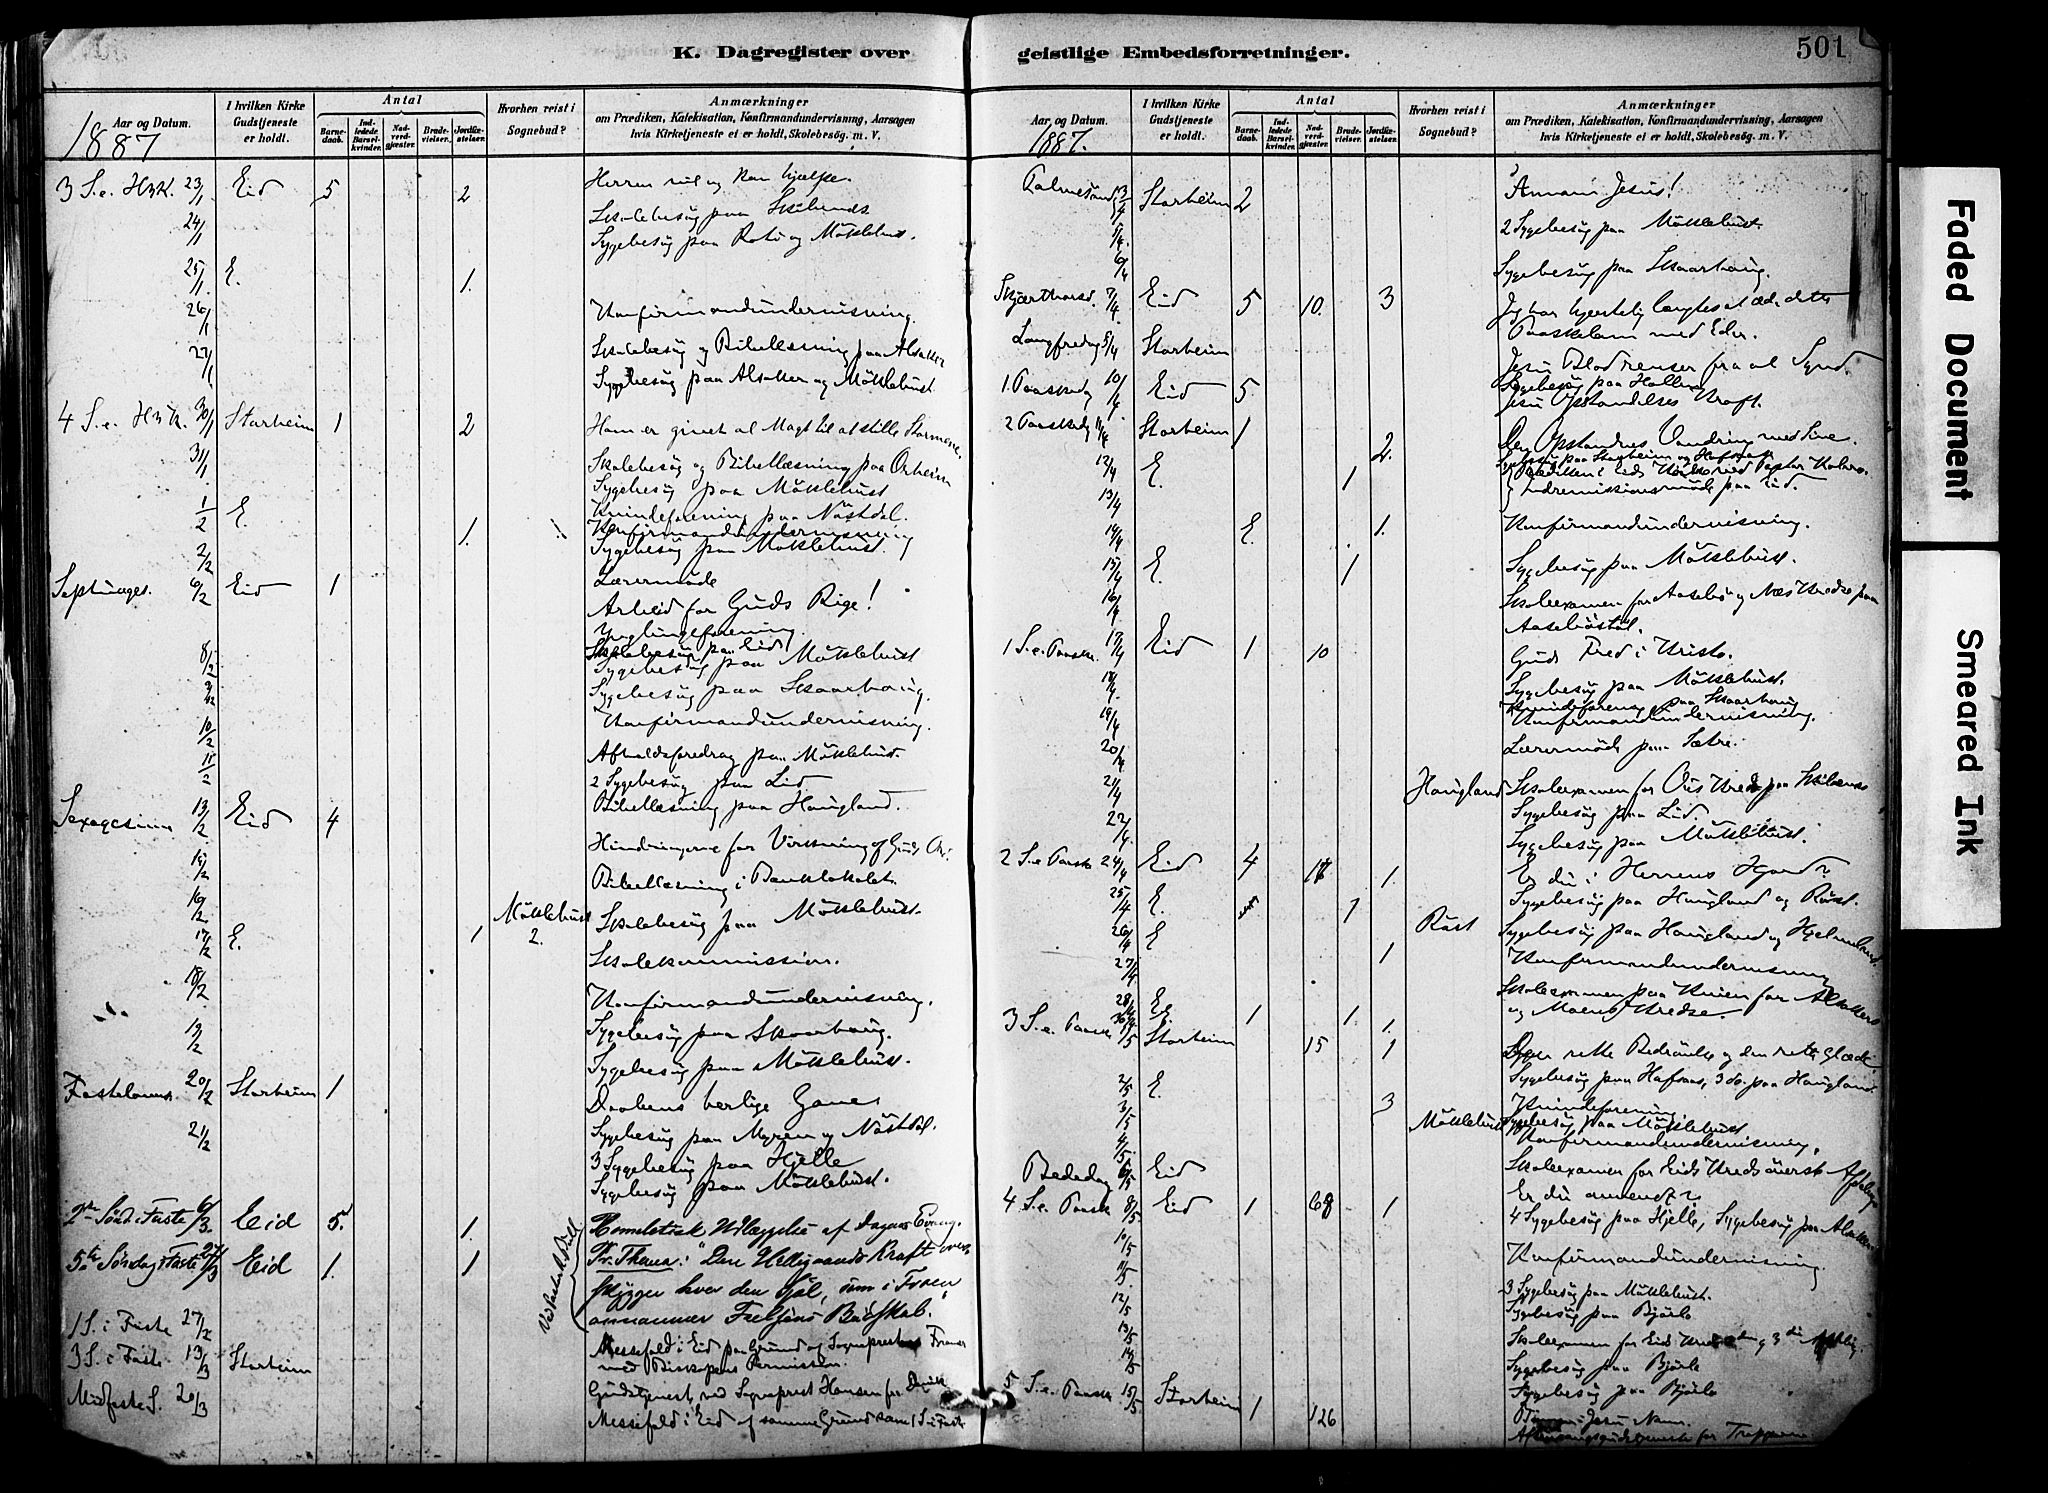 K. Dagregister over geistlige Embedsforretninger.
501
Aar og Datum.
I hvilken Kirke Gudstjeneste er holdt.
Antal
Barnedaab.
Indledede Barselkvinder.
Nadverdgjæster.
Brudevielser.
Jordfæstelser.
Hvorhen reist i Sognebud?
Anmærkninger
om Prædiken, Katekisation, Konfirmandundervisning, Aarsagen
hvis Kirketjeneste ei er holdt, Skolebesøg. m. V.
1887
3 S. e. H3K. 23/1 Eid 5 2 Herren vil og kan hjælpe.
24/1 Skolebesøg paa
Sygebesøg paa og Möklebust.
25/1 E. 1.
26/1 Konfirmandundervisning.
27/1 Skolebesøg og Bibellæsning paa Alsaker
Sygebesøg paa Alsaker og Möklebust
4 S. e. H3K. 30/1 Starheim 1 2 Ham er givet al Magt til at stille Stormene.
31/1 Skolebesøg og Bibellæsning paa Orheim
Sygebesøg paa Möklebust
1/2 E. 1. Kvindeforening paa Nöstdal.
Konfirmandundervisning
Sygebesøg paa Möklebust.
2/2 Lærermøde
Septuages. 6/2 Eid 1 Arbeid for Guds Rige!
Ynglingeforening
8/2 Skolebesøg paa Eid
Sygebesøg paa Möklebust
9/2 Sygebesøg paa Skaarhaug.
10/2 Konfirmandundervisning.
11/2 Afholdsforedrag paa Möklebust.
2 Sygebesøg paa Lid
Bibellæsning paa Haugland.
Sexagesima 13/2 Eid 4 Hindringerne for Virkning af Guds Ord.
Bibellæsning i Banklokalet.
16/2 Möklebust 2. Skolebesøg paa Möklebust.
17/2 E. 1 Skolekommission.
18/2 Konfirmandundervisning.
Sygebesøg paa Skaarhaug.
19/2 Sygebesøg paa Möklebust.
Fastelavns 20/2 Starheim 1 Daabens herlige Gaver
21/2 Sygebesøg paa Myren og Nöstdal.
3 Sygebesøg paa Hjelle
Sygebesøg paa Möklebust.
2den Sönd. i Faste 6/3. Eid 5. 1. Homeletisk Udlæggelse af Dagens Evang.
5te Söndag i Faste 27/3 Eid 1. 1 Pr. Thema: "Den Helligaands Kraft over-
skygger hver den Sjæl, som i Troen
annammer Frelsens Budskab."
1 S. i Faste 27/2 Messefald i Eid paa Grund af Sogneprestens
med Biskopens Permission.
3 S. i Faste 13/3 Starheim Gudstjeneste ved Sogneprest Hansen for
Midfaste S. 20/3 Messefald i Eid af samme Grund som 1 S. i Faste
Aar og Datum.
I hvilken Kirke Gudstjeneste er holdt.
Antal
Barnedaab.
Indledede Barselkvinder.
Nadverdgjæster.
Brudevielser.
Jordfæstelser.
Hvorhen reist i Sognebud?
Anmærkninger
om Prædiken, Katekisation, Konfirmandundervisning, Aarsagen
hvis Kirketjeneste ei er holdt, Skolebesøg. m. V.
1887.
Palmesönd. 3/4 Starheim 2 Annam Jesus!
5/4. 2 Sygebesøg paa Möklebust.
6/4 Sygebesøg paa Skaarhaug.
Skjærthorsd. 7/4 Eid 5 10. 3 Jeg har hjertelig længtes at æde dette
Paaskelam med Eder.
Langfredag Starheim Jesu Blod renser fra al Synd.
Sygebesøg paa
1. Paaskedag 10/4 Eid 5. Jesu Opstandelses Kraft.
2 Paaskedag 11/4 Starheim 1 2. Den Opstandnes Vandring med Sine.
Sygebesøg paa Starheim og Hafnaas
12/4 E. 1 Prædiken i Eids Kirke ved Pastor
13/4 Indremissionsmøde paa Eid.
14/4 E. 1. Konfirmandundervisning.
15/4 E. 1 Sygebesøg paa Möklebust.
16/4 Skoleexamen for Aasebø og Næs Kredse paa
Aasebøstøl.
1 S. e. Paaske 17/4 Eid 1 10 Guds Fred i Kristo.
18/4. Sygebesøg paa Möklebust.
Kvindeforening paa Skaarhaug
19/4 Konfirmandundervisning.
20/4 Lærermøde paa Sætre.
21/4 Haugland Skoleexamen for Kreds paa
Sygebesøg paa Lid.
22/4. Sygebesøg paa Möklebust.
2 S. e. Paaske 24/4 Eid 4 17 1. Er du i Herrens Hjord?
25/4 E. 1 Sygebesøg paa Haugland og Röst.
26/4 E Röst Sygebesøg paa Haugland og Hjelmeland.
27/4. 1 Konfirmandundervisning
28/4 E. Skoleexamen paa for Alsakers
30/4 E. 1 1. 1. og Moens Kredse
3 S. e. Paaske 1/5 Starheim 15 1 rette Bedrøvelse og den rette Glæde
2/5 E Sygebesøg paa Hafnaas, 3 do. paa Haugland.
3/5 3 Kvindeforening
Möklebust Sygebesøg paa Möklebust
4/5. Konfirmandundervisning,
Skoleexamen for Eids Kreds øverste Afdeling
Bededag 6/5 Eid Er du omvendt?
4 S. e. Paaske 8/5 Eid 1 68 1 4 Sygebesøg paa Hjelle, Sygebesøg paa Alsaker
10/5 Konfirmandundervisning.
11/5 3 Sygebesøg paa Möklebust.
12/5 Sygebesøg paa Bjørlo
13/5 Skoleexamen for Eids Kreds og 3die Afdeling
14/5 Sygebesøg paa Bjørlo
Sygebesøg paa Bjørlo
5 S. e. Paaske 15/5 Starheim 1 126 Bøn i Jesu Navn.
Aftensangsgudstjeneste for
Faded Document
Smeared Ink